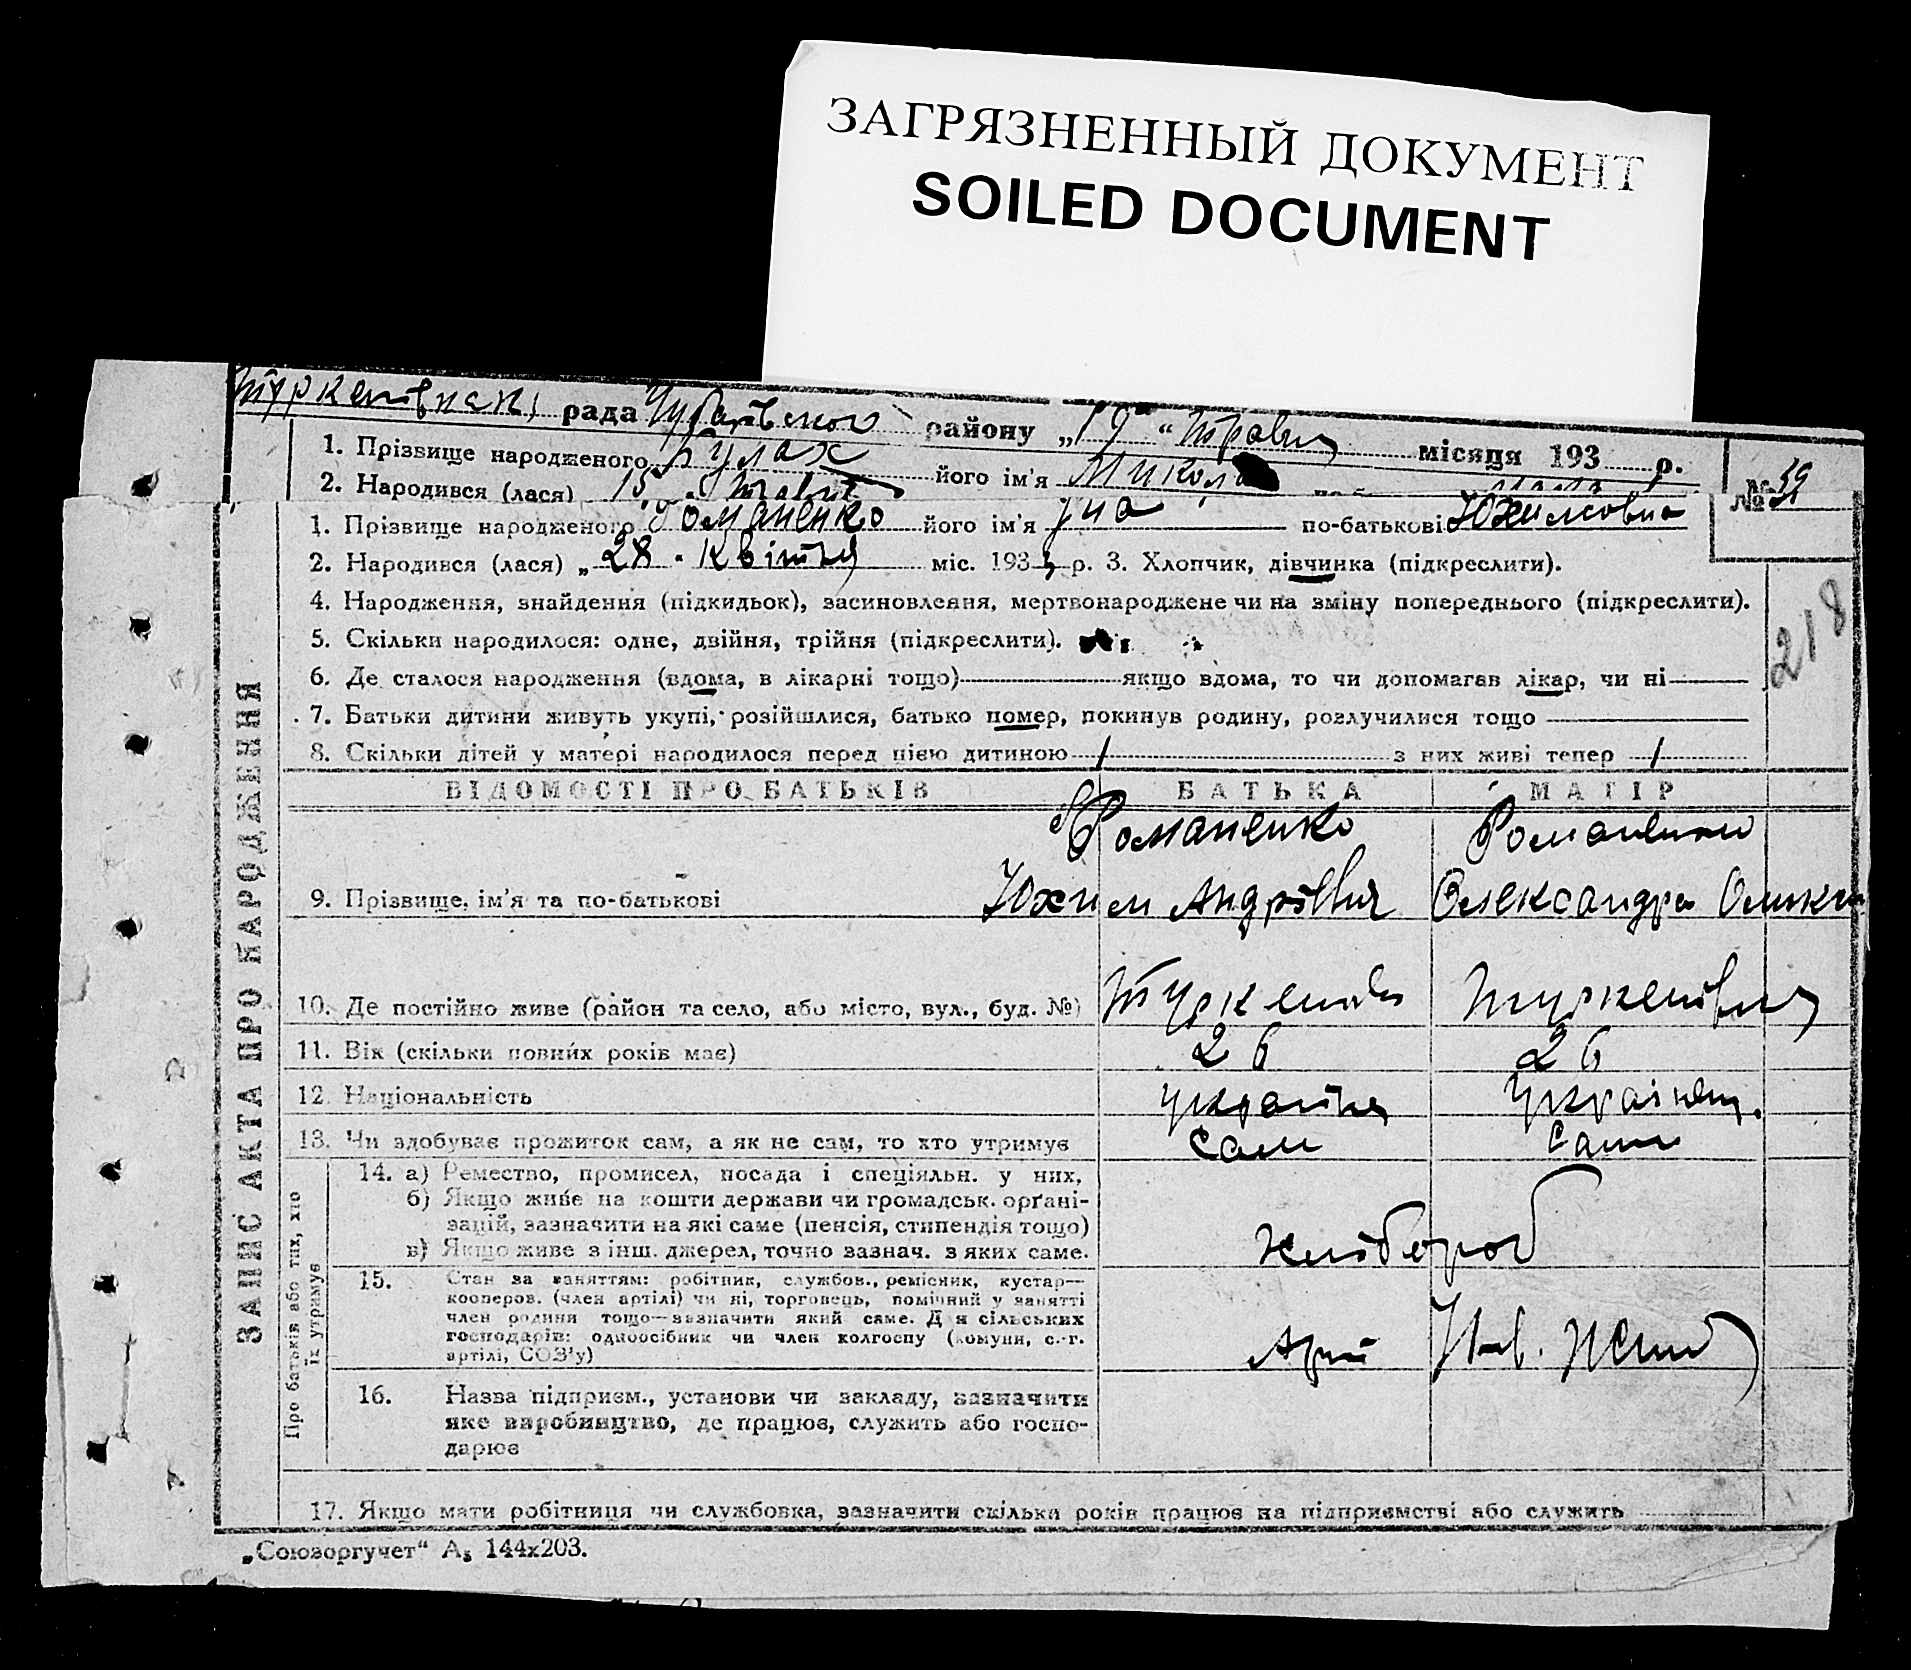 ЗАГРЯЗНЕННЫЙ ДОКУМЕНТ
SOILED DOCUMENT
рада району „19“ Травня місяця 193 р.
1. Прізвище народженого його ім'я Микола
2. Народився (лася) 15
№ 39
1. Прізвище народженого Романенко його ім'я по-батькові Юхимовна
2. Народився (лася) „28 " Квітня міс. 193 р. 3. Хлопчик, дівчинка (підкреслити).
4. Народження, знайдення (підкидьок), засиновлення, мертвонароджене чи на зміну попереднього (підкреслити).
5. Скільки народилося: одне, двійня, трійня (підкреслити).
6. Де сталося народження (вдома, в лікарні тощо) якщо вдома, то чи допомагав лікар, чи ні
7. Батьки дитини живуть укупі, розійшлися, батько помер, покинув родину, розлучилися тощо
8. Скільки дітей у матері народилося перед цією дитиною 1 з них живі тепер 1
218
ЗАПИС АКТА ПРО НАРОДЖЕННЯ
ВІДОМОСТІ ПРО БАТЬКІВ БАТЬКА МАТІР
Романенко Романенко
9. Прізвище, ім'я та по-батькові Юхим Андрієвич Олександра
10. Де постійно живе (район та село, або місто, вул., буд. №)
11. Вік (скільки повних років має) 26 26
12. Національність
13. Чи здобуває прожиток сам, а як не сам, то хто утримує сам сама
Про батьків або тих, хто
їх утримує
14. а) Ремество, промисел, посада і спеціяльн. у них,
б) Якщо живе на кошти держави чи громадськ. орґані-
зацій, зазначити на які саме (пенсія, стипендія тощо)
в) Якщо живе з інш. джерел, точно зазнач. з яких саме.
хлібороб
15. Стан за заняттям: робітник, службов., ремісник, кустар—
кооперов. (член артілі) чи ні, торговець, помічний у занятті
член родини тощо—зазначити який саме. Для сільських
господарів: одноосібник чи член колгоспу (комуни, с.-г.
артілі, СОЗ'у)
16. Назва підприєм., установи чи закладу, зазначити
яке виробництво, де працює, служить або госпо-
дарює
17. Якщо мати робітниця чи службовка, зазначити скільки років працює на підприємстві або служить
„Союзоргучет“ А₅ 144х203.